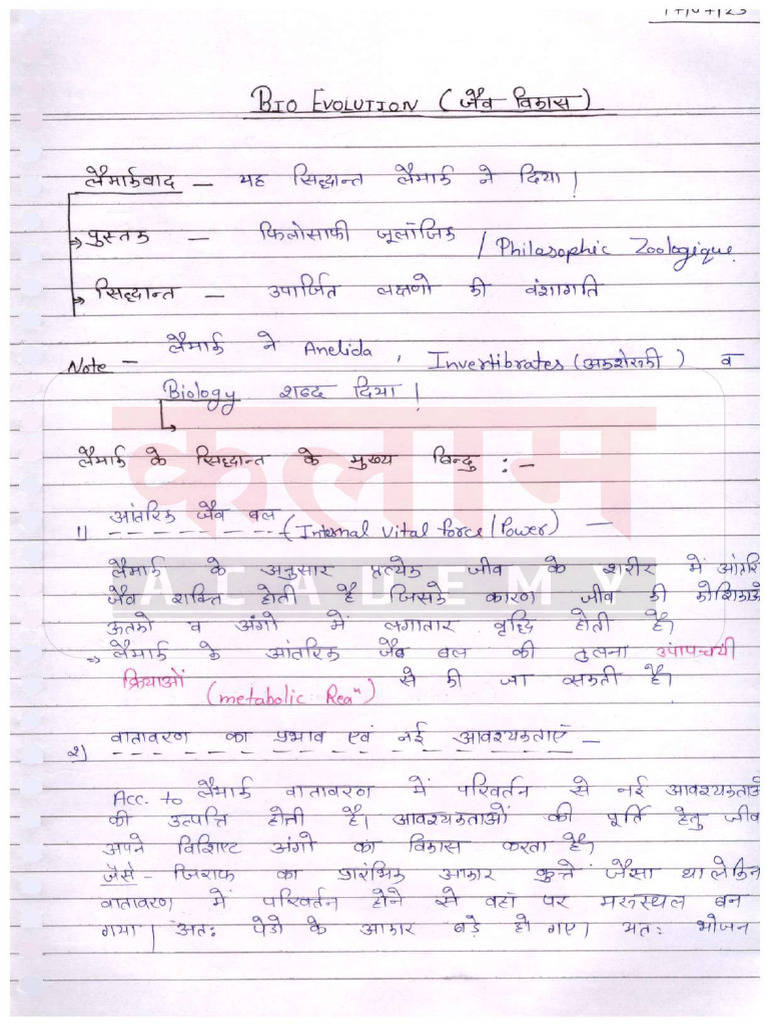 BIO EVOLUTION (जैव विकास)
लैमार्कवाद – यह सिद्धान्त लैमार्क ने दिया।
पुस्तक – फिलोसाफी जूलॉजिक / Philosophic Zoologique
सिद्धान्त – उपार्जित लक्षणो की वंशागति
Note – लैमार्क ने Anelida, Invertibrates (अकशेरूकी) व
Biology शब्द दिया।
लैमार्क के सिद्धान्त के मुख्य बिन्दु :–
कलाम
1) आंतरिक जैव बल (Internal Vital force/Power) –
लैमार्क के अनुसार प्रत्येक जीव के शरीर में आंतरि
ACADEMY
जैव शक्ति होती है जिसके कारण जीव की कोशिकाओ
ऊतको व अंगो में लगातार वृद्धि होती है।
⇒ लैमार्क के आंतरिक जैव बल की तुलना उपापचयी
क्रियाओं (metabolic Reaⁿ) से की जा सकती है।
2) वातावरण का प्रभाव एवं नई आवश्यकताएं –
Acc. to लैमार्क वातावरण में परिवर्तन से नई आवश्यकताओ
की उत्पत्ति होती है। आवश्यकताओं की पूर्ति हेतु जीव
अपने विशिष्ट अंगो का विकास करता है।
जैसे – जिराफ का प्रारंभिक आकार कुत्ते जैसा था लेकिन
वातावरण में परिवर्तन होने से वहां पर मरूस्थल बन
गया। अतः पेडो के आकार बड़े हो गए। अतः भोजन